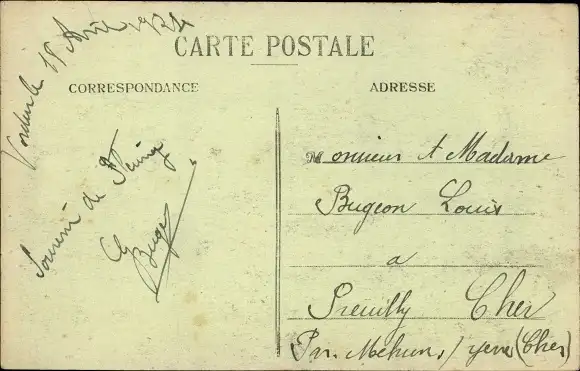 le 18 Août 1924
CARTE POSTALE
CORRESPONDANCE
Souvenir de
Bugeon
ADRESSE
Monsieur et Madame
Bugeon Louis
a
Preuilly Cher
Par Mehun s/ yevre (Cher)